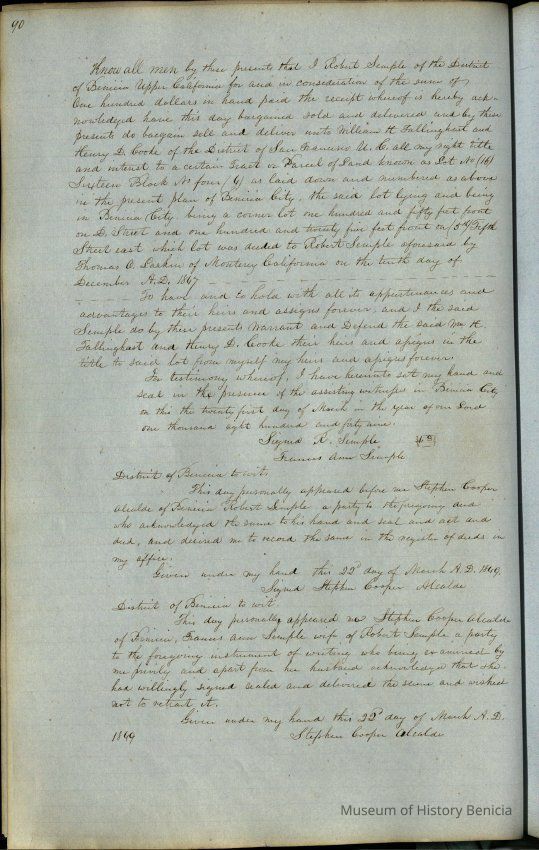 90
Know all men by these presents that I Robert Semple of the District
of Benicia Upper California for and in consideration of the sum of
One hundred dollars in hand paid the receipt whereof is hereby ack-
nowledged have this day bargained sold and delivered and by these
presents do bargain sell and deliver unto William H. Tallinghast and
Henry D. Cooke of the District of San Francisco U. C. all my right title
and interest to a certain Tract or Parcel of Land known as Lot No (16)
Sixteen Block No four (4) as laid down and numbered as above
in the present plan of Benicia City, the said lot lying and being
in Benicia City being a corner lot one hundred and fifty feet front
on D. Street and one hundred and twenty five feet front on (5th) Fifth
Street east which lot was deeded to Robert Semple aforesaid by
Thomas O. Larkin of Monterey California on the tenth day of
December A.D. 1847
To have and to hold with all its appurtenances and
advantages to their heirs and assigns forever, and I the said
Semple do by these presents Warrant and Defend the said Wm H.
Tallinghast and Henry D. Cooke their heirs and assigns in the
title to said lot from myself my heirs and assigns forever.
In testimony whereof, I have hereunto set my hand and
seal in the presence of the assisting witnesses in Benicia City
on this the twenty first day of March in the year of our Lord
one thousand eight hundred and forty nine.
Signed R. Semple
Frances Ann Semple
District of Benicia to wit.
This day personally appeared before me Stephen Cooper
Alcalde of Benicia Robert Semple, a party to the foregoing deed
who acknowledged the same to his hand and seal and act and
deed, and desired me to record the same in the register of deeds in
my office.
Given under my hand this 22d day of March A.D. 1849.
Signed Stephen Cooper Alcalde
District of Benicia to wit
This day personally appeared me Stephen Cooper Alcalde
of Benicia, Frances Ann Semple wife of Robert Semple a party
to the foregoing instrument of writing who being examined by
me privily and apart from her husband acknowledge that she
had willingly signed sealed and delivered the same and wished
not to retract it.
Given under my hand this 22d day of March A.D.
1849 Stephen Cooper Alcalde
Museum of History Benicia